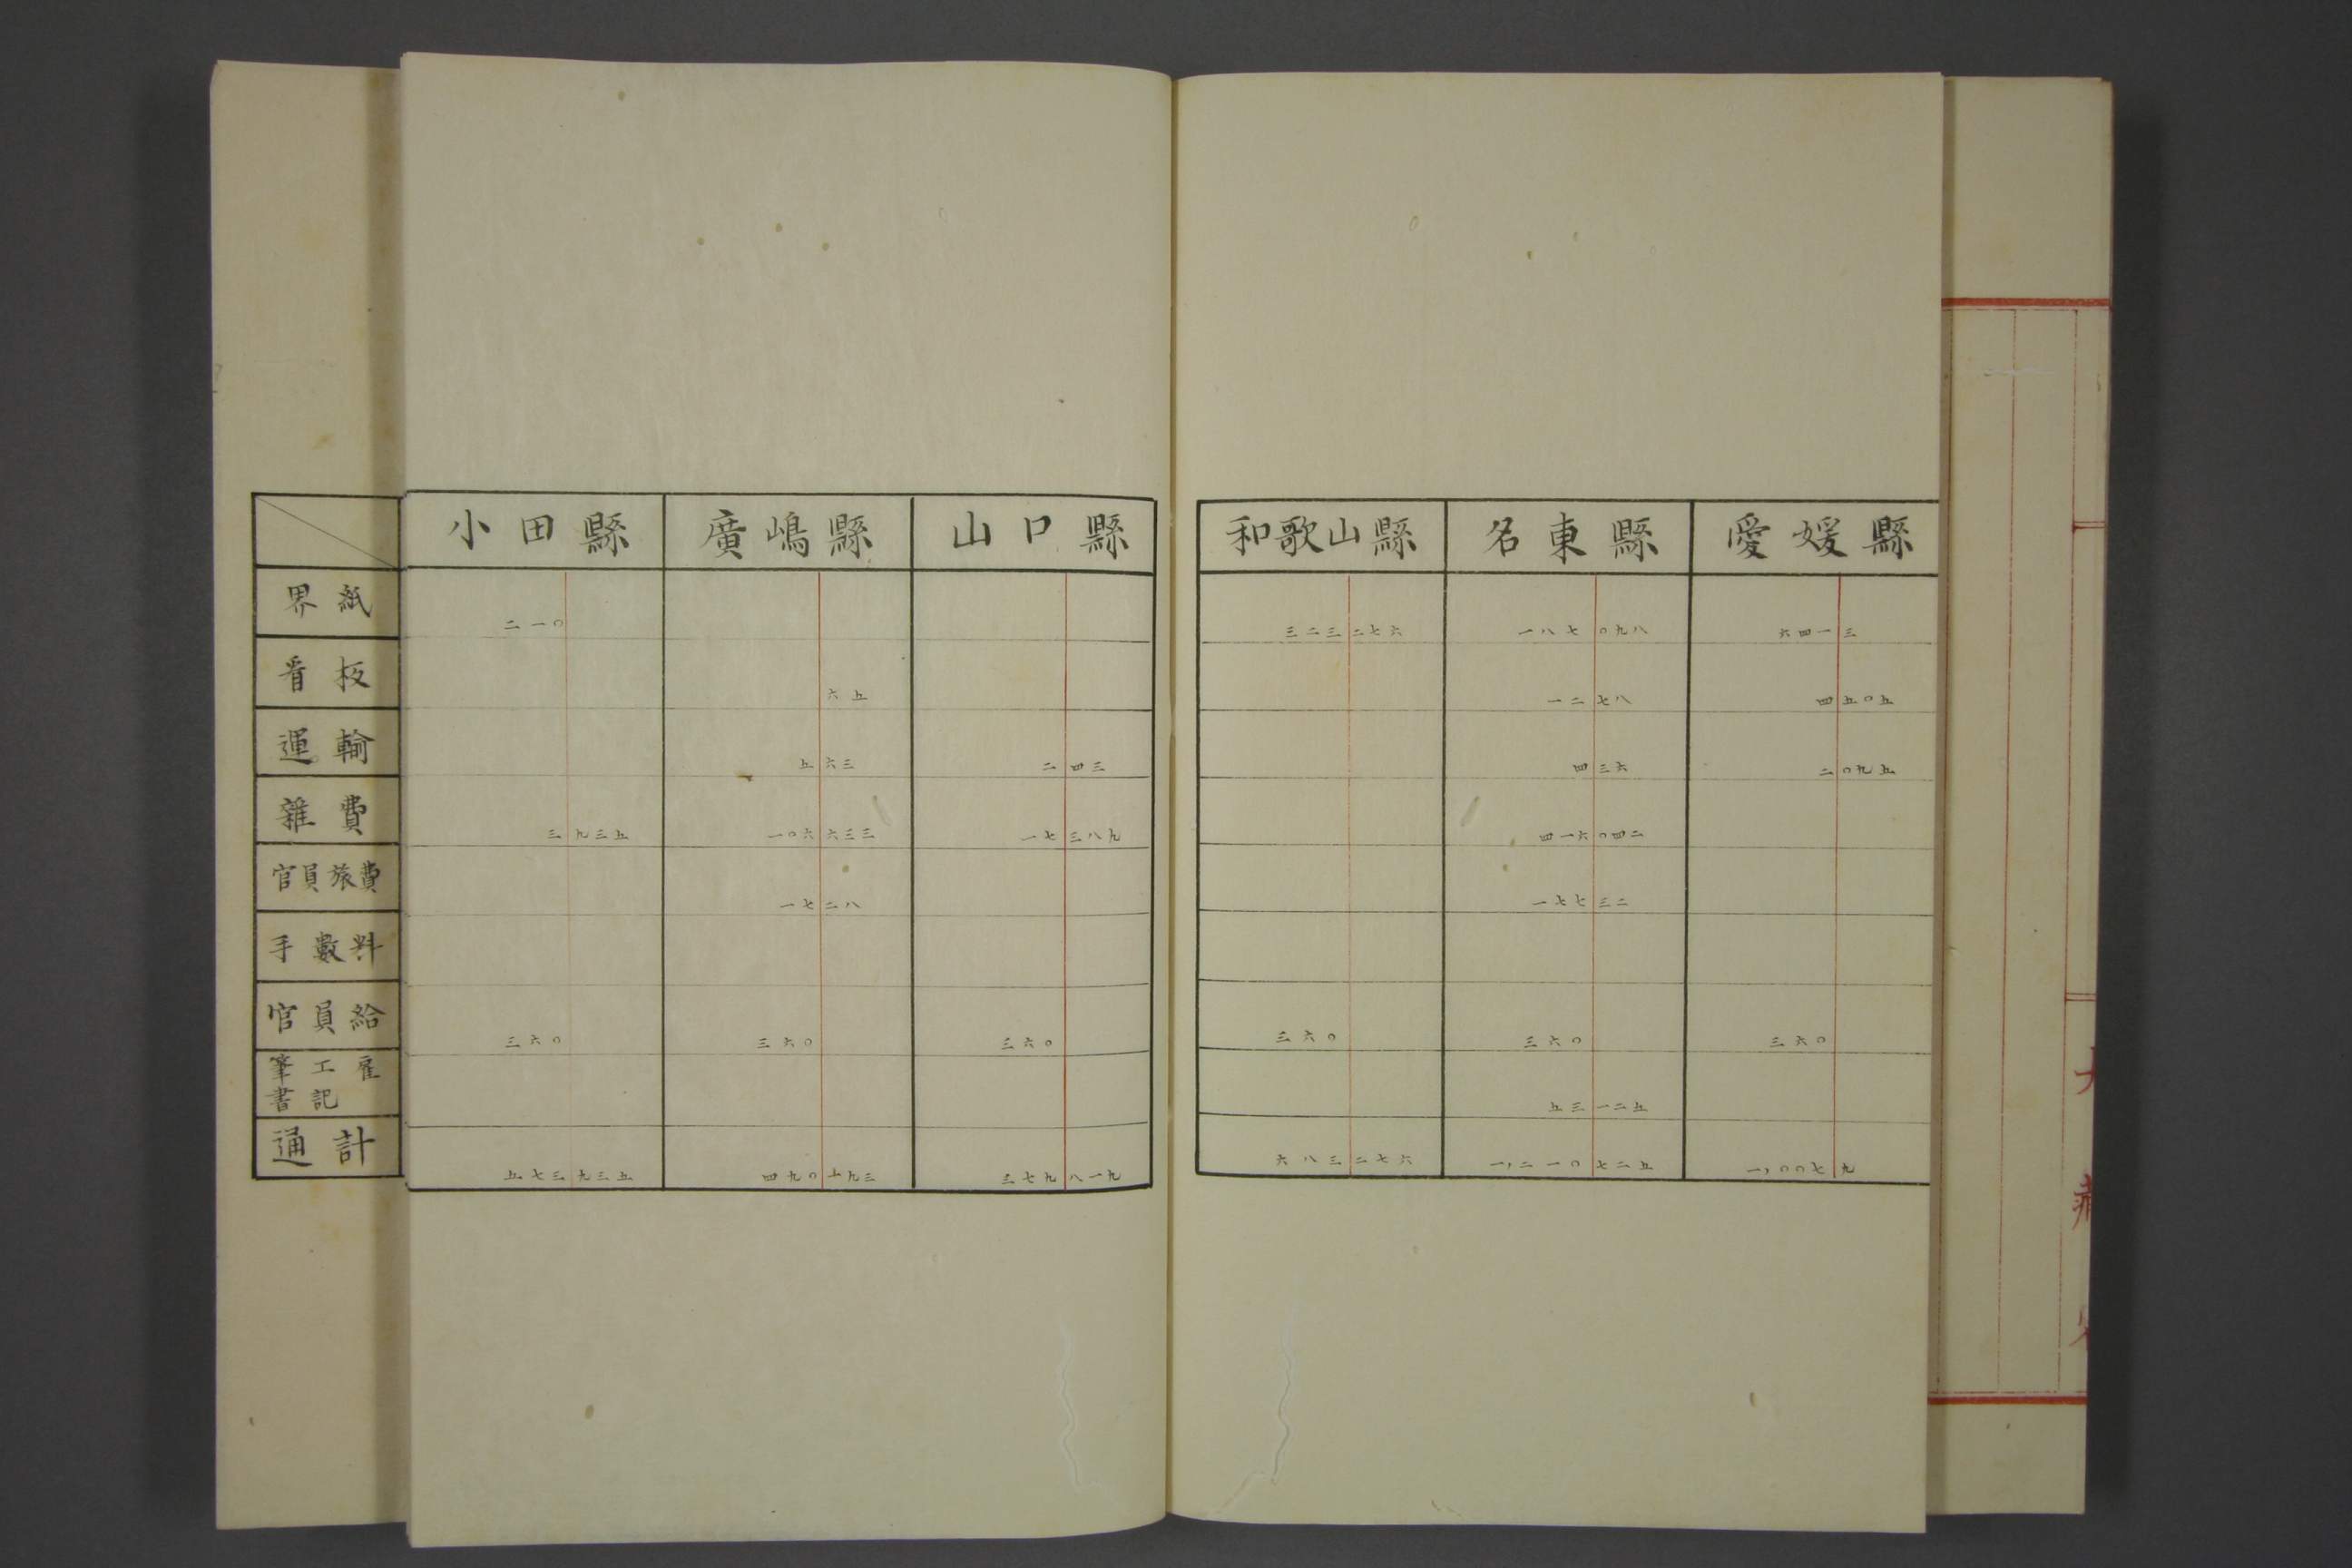 小田縣 廣嶋縣 山口縣 和歌山縣 名東縣 愛媛縣
界紙 二一〇 三二三二七六 一八七〇九八 六四一三
看板 六五 一二七八 四五〇五
運輸 五六三 二四三 四三六 二〇九五
雜費 三九三五 一〇六六三三 一七三八九 四一六〇四二
官員旅費 一七二八 一七七三二
手數料
官員給 三六〇 三六〇 三六〇 三六〇 三六〇 三六〇
筆工雇
書記 五三一二五
通計 五七三九三五 四九〇 九三 三七九八一九 六八三二七六 一,二一〇七二五 一,〇〇七九